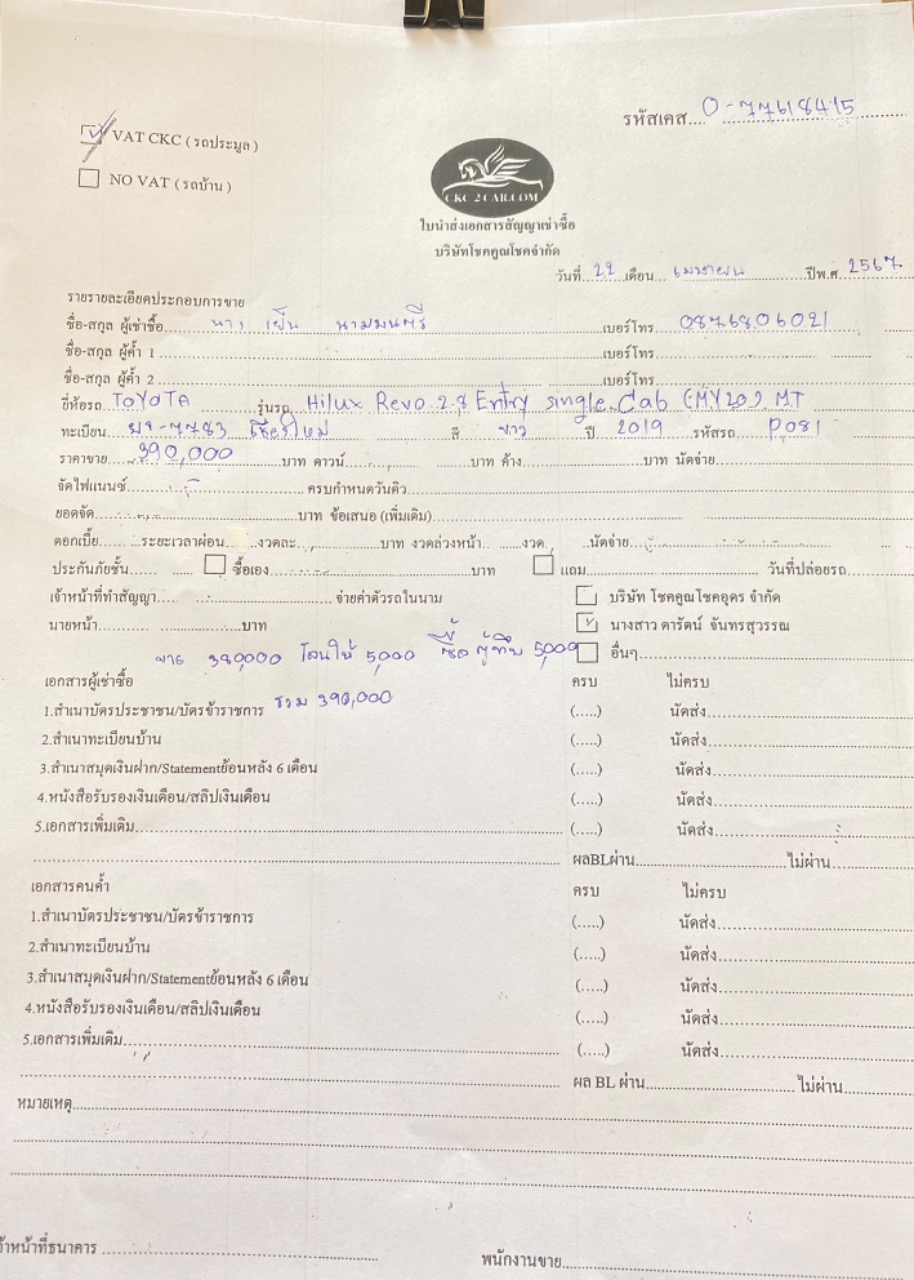 รหัสเคส....O-77618415
VAT CKC ( รถประมูล )
NO VAT ( รถบ้าน )
CKC 2 CAR.COM
ใบนำส่งเอกสารสัญญาเช่าซื้อ
บริษัทโชคคูณโชคจำกัด
วันที่ 22 เดือน เมษายน ปีพ.ศ 2567
รายรายละเอียดประกอบการขาย
ชื่อ-สกุล ผู้เช่าซื้อ นาง เย็น นามมนตรี เบอร์โทร 0876806021
ชื่อ-สกุล ผู้ค้ำ 1 เบอร์โทร
ชื่อ-สกุล ผู้ค้ำ 2 เบอร์โทร
ยี่ห้อรถ TOYOTA รุ่นรถ Hilux Revo 2.8 Entry single Cab (MY20) MT
ทะเบียน 7783 เชียงใหม่ สี ขาว ปี 2019 รหัสรถ P081
ราคาขาย 390,000 บาท ดาวน์ บาท ค้าง บาท นัดจ่าย
จัดไฟแนนซ์ ครบกำหนดวันติว
ยอดจัด บาท ข้อเสนอ (เพิ่มเติม)
ดอกเบี้ย ระยะเวลาผ่อน งวดละ บาท งวดล่วงหน้า งวด นัดจ่าย
ประกันภัยชั้น ซื้อเอง บาท แถม วันที่ปล่อยรถ
เจ้าหน้าที่ทำสัญญา จ่ายค่าตัวรถในนาม บริษัท โชคคูณโชคอุดร จำกัด
นายหน้า บาท นางสาว ดารัตน์ จันทรสุวรรณ
ขาย 380,000 โอนให้ 5,000 5,000 อื่นๆ
เอกสารผู้เช่าซื้อ ครบ ไม่ครบ
1.สำเนาบัตรประชาชน/บัตรข้าราชการ รวม 390,000 (.....) นัดส่ง
2.สำเนาทะเบียนบ้าน (.....) นัดส่ง
3.สำเนาสมุดเงินฝาก/Statementย้อนหลัง 6 เดือน (.....) นัดส่ง
4.หนังสือรับรองเงินเดือน/สลิปเงินเดือน (.....) นัดส่ง
5.เอกสารเพิ่มเติม (.....) นัดส่ง
ผลBLผ่าน ไม่ผ่าน
เอกสารคนค้ำ ครบ ไม่ครบ
1.สำเนาบัตรประชาชน/บัตรข้าราชการ (.....) นัดส่ง
2.สำเนาทะเบียนบ้าน (.....) นัดส่ง
3.สำเนาสมุดเงินฝาก/Statementย้อนหลัง 6 เดือน (.....) นัดส่ง
4.หนังสือรับรองเงินเดือน/สลิปเงินเดือน (.....) นัดส่ง
5.เอกสารเพิ่มเติม (.....) นัดส่ง
ผล BL ผ่าน ไม่ผ่าน
หมายเหตุ
จ้าหน้าที่ธนาคาร พนักงานขาย